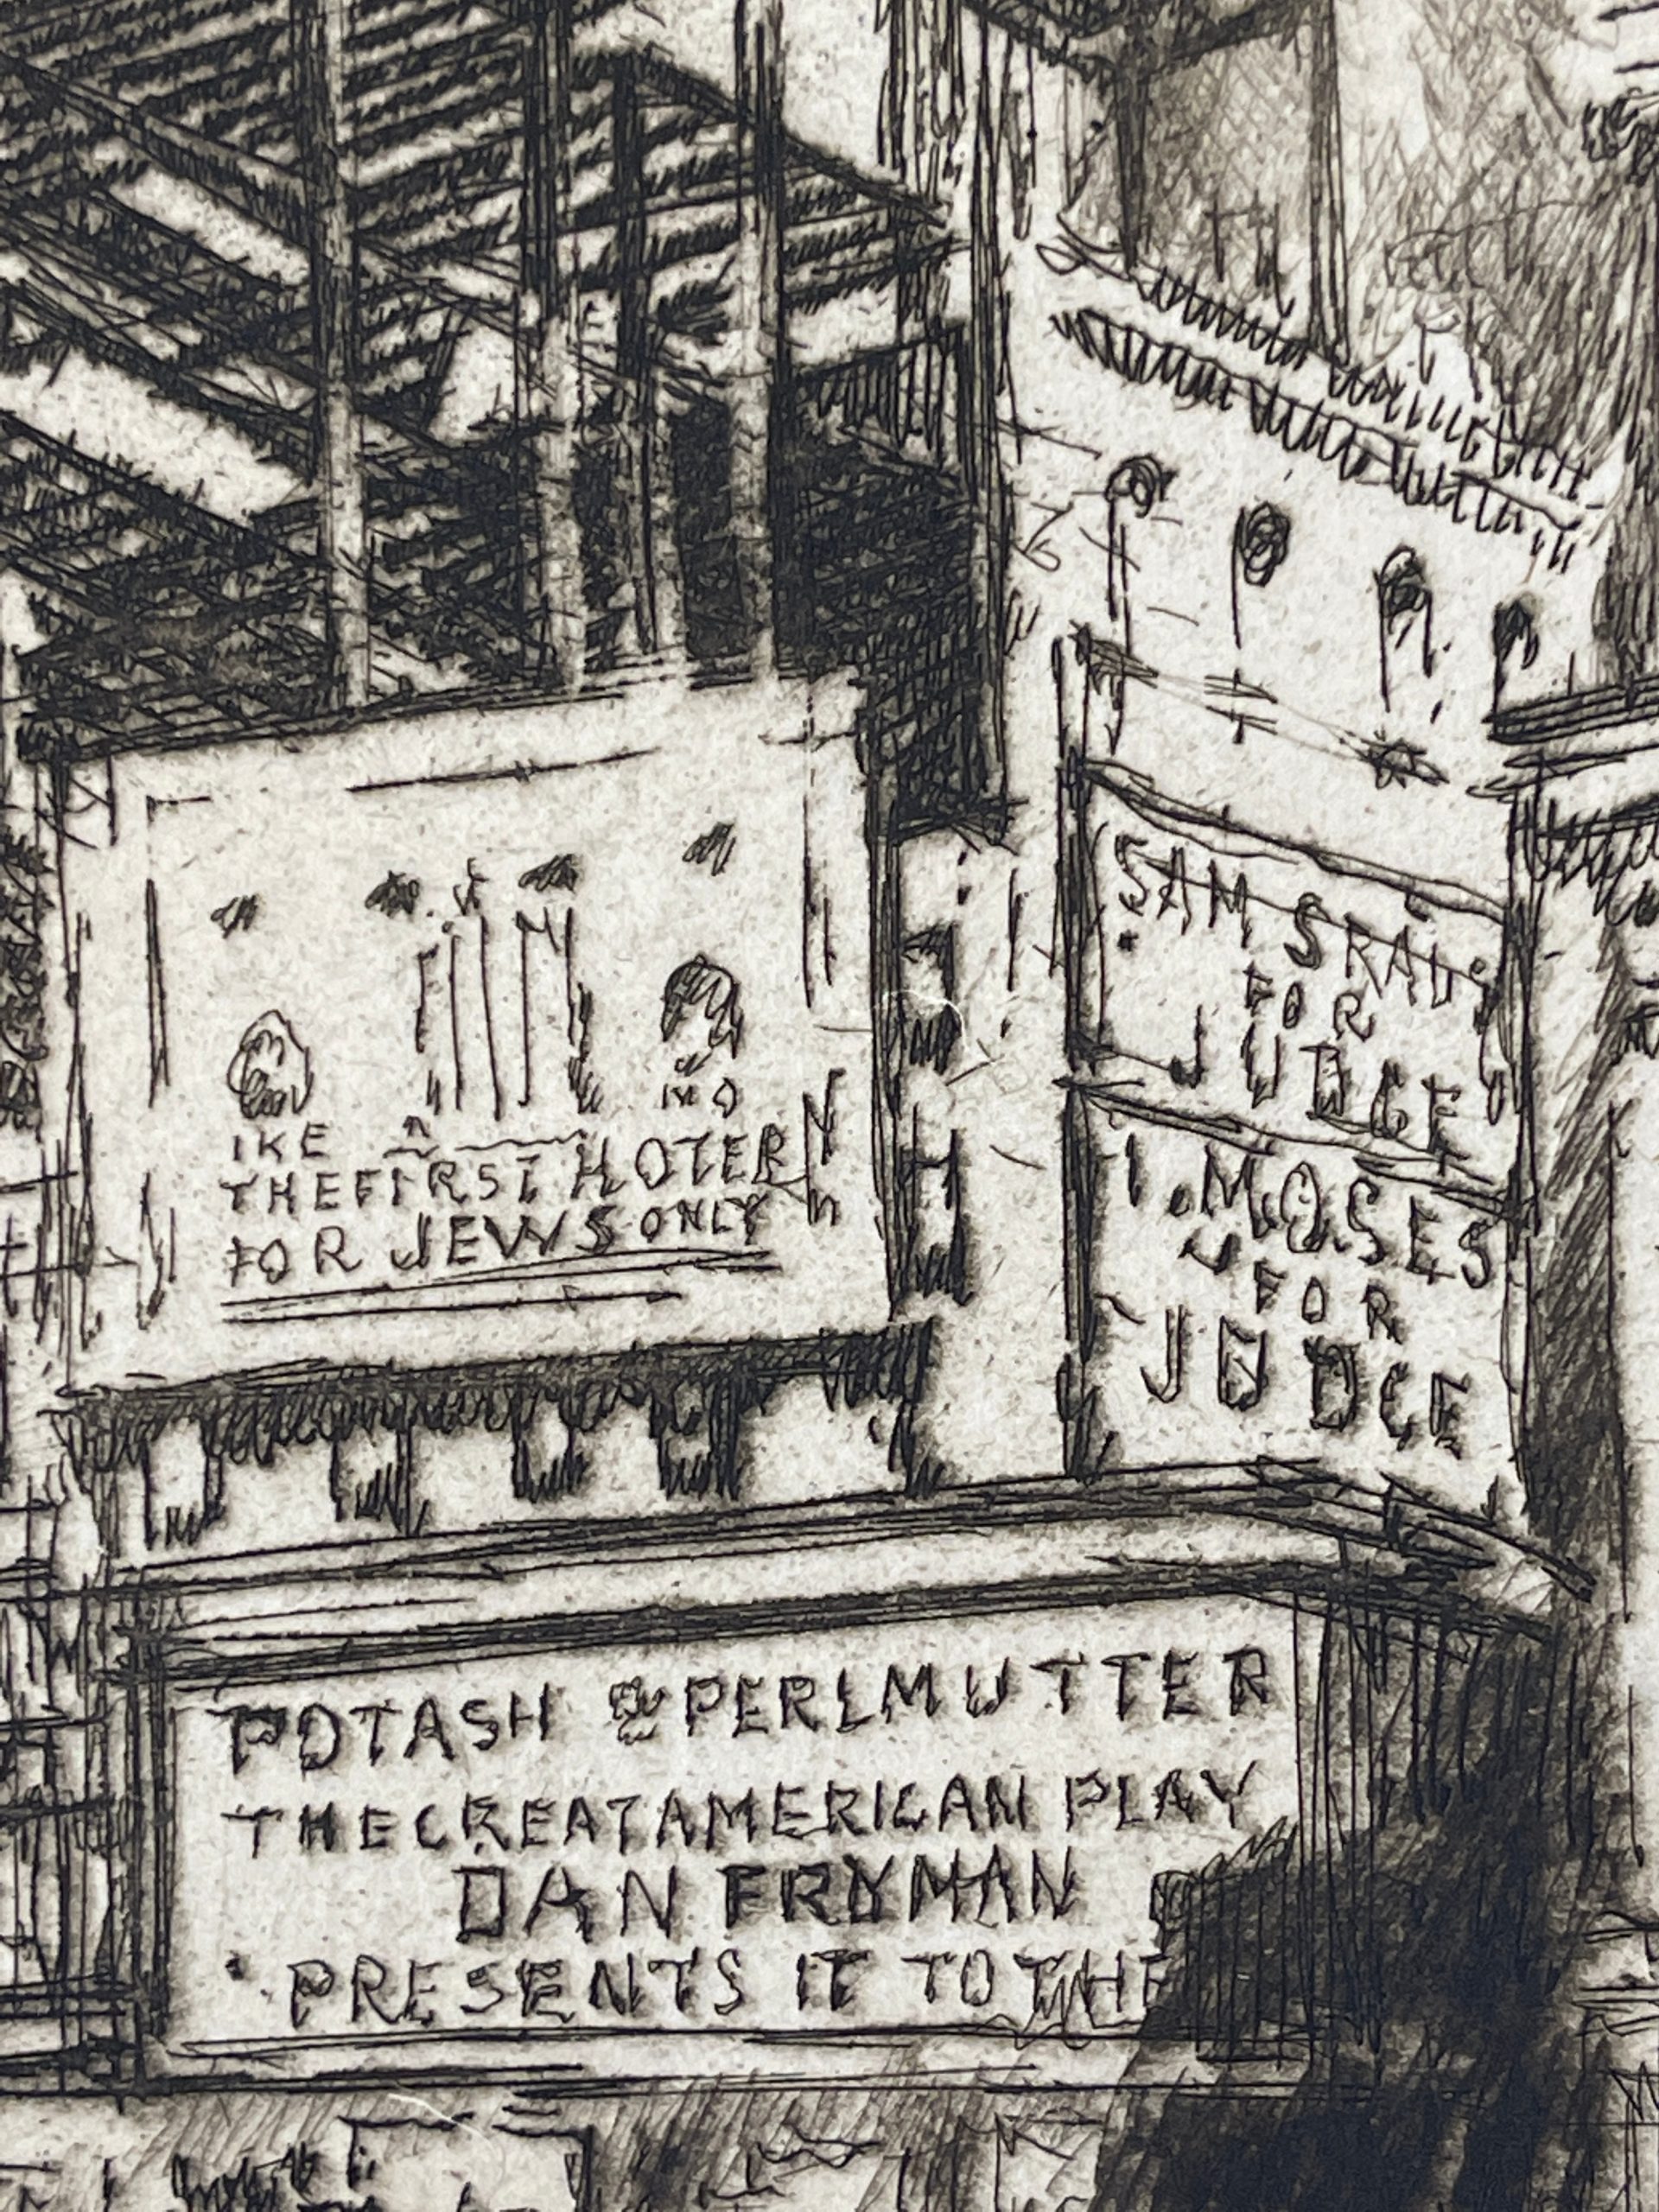 IKE
MO
THE FIRST HOTER
FOR JEWS ONLY
SAM SRAU
FOR
JUDGE
I. MOSES
FOR
JUDCE
POTASH & PERLMUTTER
THE CREAT AMERICAN PLAY
DAN FROMAN
PRESENTS IT TO THE